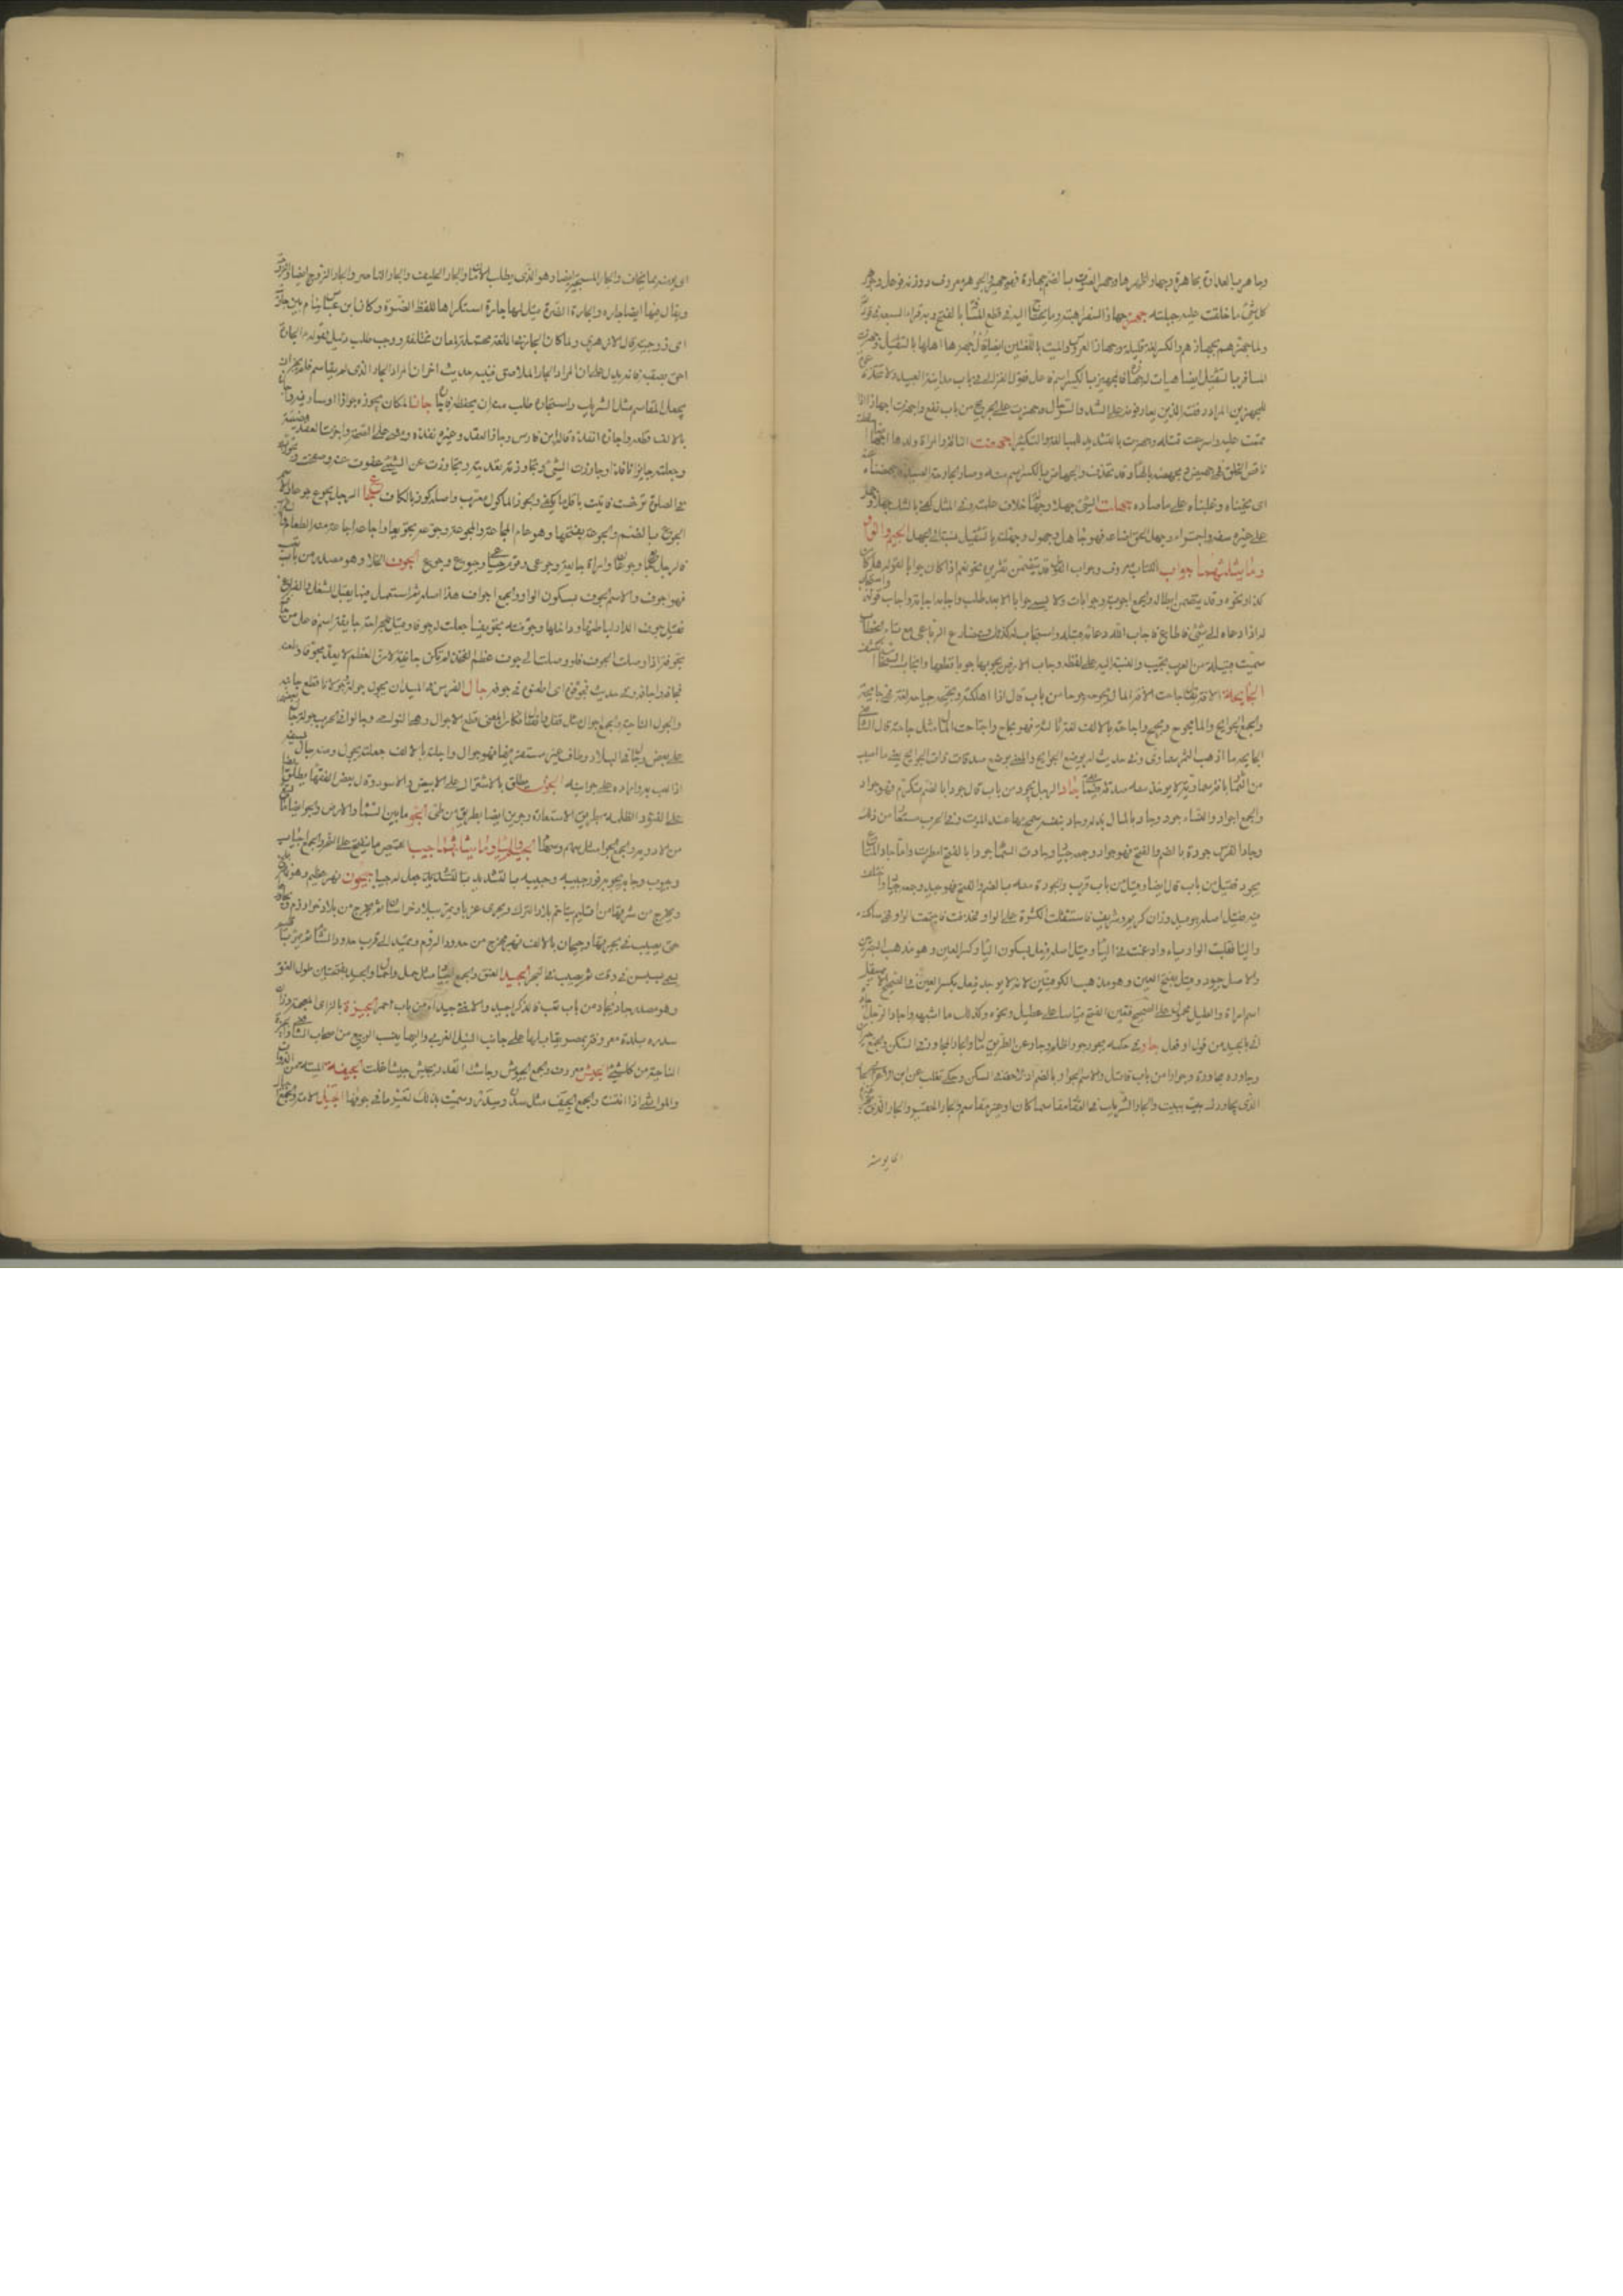 وجاهر بالعداوة مجاهرة وجهارا اظهرها وجهر الصوت بالضم جهارة فهو جهير والجوهر معروف ووزنه فوعل وجوهر
كل شئ ما خلقت عليه جبلته جهز جهاز السفر اهبته وما يحتاج اليه في قطع المسافة بالفتح وبه قرأ السبعة في قوله
ولما جهزهم بجهازهم والكسر لغة قليلة وجهاز العروس والميت باللغتين ايضا يقال جهزها اهلها بالتثقيل وجهزت
المسافر بالتثقيل ايضا هيأت له جهازه فالمجهز بالكسر اسم فاعل فقول الغزالي في باب مداينة العبيد ولا يتخذ دعوة
للمجهزين المراد رفقته الذين يعاونونه على الشد والترحال وجهزت على الجريح من باب نفع واجهزت اجهازا اذا
تممت عليه واسرعت قتله وجهزت بالتشديد للمبالغة والتكثير اجهضت الناقة والمراة ولدها اجهاضا اسقطته
ناقص الخلق فهي جهيض ومجهضة بالهاء وقد تحذف والجهاض بالكسر اسم منه وصاد الجارحة الصيد فاجهضناه عنه
اى نحيناه وغلبناه على ما صاده جهلت الشئ جهلا وجهالة خلاف علمته وفي المثل كفى بالشك جهلا وجهل
على غيره سفه واخطأ وجهل الحق اضاعه فهو جاهل وجهول وجهلته بالتثقيل نسبته الى الجهل الجيم والواو
وما يثلثهما جواب الكتاب معروف وجواب القول قد يتضمن تقريره نحو نعم اذا كان جوابا لقوله هل كان
كذا ونحوه وقد يتضمن ابطاله والجمع اجوبة وجوابات ولا يسمى جوابا الا بعد طلب واجابه اجابة واجاب قوله واستجاب
له اذا دعاه الى شئ فاطاع واجاب الله دعاءه قبله واستجاب له كذلك وبمضارع الرباعي مع تاء الخطاب
سميت قبيلة من العرب تجيب والنسبة اليه على لفظه وجاب الارض يجوبها جوبا قطعها وانجاب السحاب انكشف
الجائحة الافة يقال جاحت الآفة المال تجوحه جوحا من باب قال اذا اهلكته وتجيحه جياحة لغة فهي جائحة
والجمع الجوائح والمال مجوح ومجيح واجاحته بالالف لغة ثالثة فهو مجاح واجتاحت المال مثل جاحته قال الشافعي
الجائحة ما اذهب الثمر بامر سماوي وفي حديث امر بوضع الجوائح والمعنى بوضع صدقات ذات الجوائح يعنى ما اصيب
من الثمار بافة سماوية لا يوخذ منه صدقة فيما بقى جاد الرجل يجود من باب قال جودا بالضم تكرم فهو جواد
والجمع اجواد والنساء جود وجاد بالمال بذله وجاد بنفسه سمح بها عند الموت وفي الحرب مستعار من ذلك
وجاد الفرس جودة بالضم والفتح فهو جواد وجمعه جياد وجادت السماء جودا بالفتح امطرت واما جاد المتاع
يجود فقيل من باب قال ايضا وقيل من باب قرب والجودة منه بالضم والفتح فهو جيد وجمعه جياد واختلف
فيه فقيل اصله جويد وزان كريم وشريف فاستثقلت الكسرة على الواو فحذفت فاجتمعت الواو وهي ساكنة
والياء فقلبت الواو ياء وادغمت في الياء وقيل اصله فيعل بسكون الياء وكسر العين وهو مذهب البصريين
والاصل جيود وقيل بفتح العين وهو مذهب الكوفيين لانه لا يوجد فيعل بكسر العين في الصحيح الا صيقل
اسم امراة والعليل محمول على الصحيح فتعين الفتح قياسا على عيطل ونحوه وكذلك ما اشبهه واجاد الرجل
اتى بالجيد من قول او فعل جار في حكمه يجور جورا ظلم وجار عن الطريق مال والجار المجاور في السكن والجمع جيران
وجاوره مجاورة وجوارا من باب قاتل والاسم الجوار بالضم اذا لاصقه في السكن وحكى ثعلب عن ابن الاعرابي الجار
الذى يجاورك بيت بيت والجار الشريك في العقار مقاسما كان او غير مقاسم والجار الخفير والجار الذى يجير غيره
اى يومنه
اى يومنه مما يخاف والجار المستجير ايضا وهو الذى يطلب الامان والجار الحليف والجار الناصر والجار الزوج ايضا والزوجة
ويقال فيها ايضا جارة والجارة الضرة قيل لها جارة استكراها للفظ الضرة وكان ابن عباس ينام بين جارتيه
اى زوجتيه قال الازهري ولما كان الجار في اللغة محتملا لمعان مختلفة وجب طلب دليل لقوله م الجار
احق بصقبه فانه يدل على ان المراد الجار الملاصق فبينه حديث اخر ان المراد الجار الذى لم يقاسم فلم يجز ان
يجعل المقاسم مثل الشريك واستجاره طلب منه ان يحفظه فاجاره جاز المكان يجوزه جوازا وجوازا سار فيه واجازه
بالالف قطعه واجازه انفذه قال ابن فارس وجاز العقد وغيره نفذ ومضى على الصحة واجزت العقد امضيته
وجعلته جايزا نافذا وجاوزت الشئ وتجاوزته تعديته وتجاوزت عن المسئ عفوت عنه وصفحت وتجوزت
في الصلوة ترخصت فاتيت باقل ما يكفى والجوز الماكول معرب واصله كوز بالكاف جاع الرجل يجوع جوعا والاسم
الجوع بالضم والجوعة بفتحها وهو عام المجاعة والمجوعة وجوعه تجويعا واجاعه اجاعة منعه الطعام والشراب
فالرجل جايع وجوعان وامراة جايعة وجوعى وقوم جياع وجوع وجوع الجوف الخلا وهو مصدر من باب تعب
فهو اجوف والاسم الجوف بسكون الواو والجمع اجواف هذا اصله ثم استعمل فيما يقبل الشغل والفراغ
فقيل جوف الدار لباطنها وداخلها وجوفته تجويفا جعلت له جوفا وقيل للجراحة جائفة اسم فاعل من جافته
تجوفه اذا وصلت الجوف فلو وصلت الى جوف عظم الفخذ لم تكن جائفة لان العظم لا يعد مجوفا وطعنه
فجافه واجافه وفي حديث فجوفوه اى اطعنوه في جوفه جال الفرس في الميدان يجول جولة وجولانا قطع جوانبه
والجول الناحية والجمع اجوال مثل قفل واقفال فكان المعنى قطع الاجوال وهى النواحى وجالوا في الحرب جولة جال بعضهم
على بعض وجال في البلاد طاف غير مستقر فيها فهو جوال واجلته بالالف جعلته يجول ومنه اجال سيفه
اذا لعب به واداره على جوانبه الجون يطلق بالاشتراك على الابيض والاسود وقال بعض الفقهاء يطلق ايضا
على الضوء والظلمة بطريق الاستعارة وجوين ايضا بطريق من طى الجو ما بين السماء والارض والجو ايضا ما اتسع
من الاودية والجمع الجواء مثل سهم وسهام الجيم والياء وما يثلثهما جيب القميص ما ينفتح على النحر والجمع اجياب
وجيوب وجابه يجيبه قور جيبه وجيبه بالتشديد جعل له جيبا جيحون نهر عظيم وهو نهر بلخ
ويخرج من شرقيها من اقليم يتاخم بلاد الترك ويجرى غربا ويمر ببلاد خراسان ثم يخرج من بلاد خوارزم ويجاوزها
حتى يصب في بحيرتها وجيحان بالالف نهر يخرج من حدود الروم ويمتد الى قرب حدود الشام ثم يمر باقليم
يسمى سيس في وقت ثم يصب في البحر الجيد العنق والجمع اجياد مثل حمل واحمال والجيد بفتحتين طول العنق
وهو مصدر جاد يجاد من باب تعب فالذكر اجيد والانثى جيداء من باب احمر الجيزة بالزاى المعجمة وزان
سدرة بلدة معروفة بمصر يقابلها على جانب النيل الغربي واليها ينسب الربيع من اصحاب الشافعي والجيزة
الناحية من كل شئ الجيش معروف والجمع الجيوش وجاشت القدر تجيش جيشا غلت الجيفة الميتة من الدواب
والمواشى اذا انتنت والجمع الجيف مثل سدرة وسدر وسميت بذلك لتغير ما في جوفها الجيل الامة والجمع اجيال